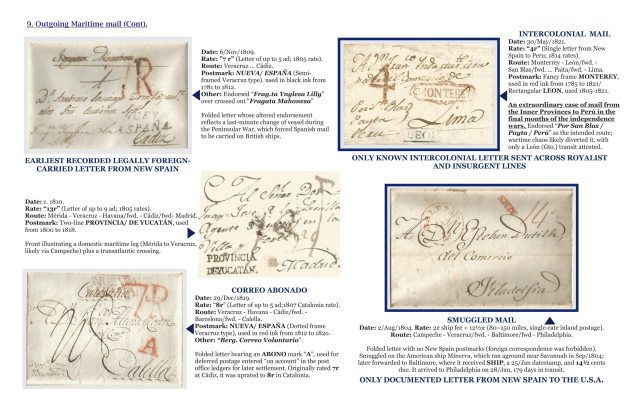 9. Outgoing Maritime mail (Cont).
7R
Cádiz
EARLIEST RECORDED LEGALLY FOREIGN-
CARRIED LETTER FROM NEW SPAIN
Date: 6/Nov/1809.
Rate: "7 r" (Letter of up to 5 ad; 1805 rate).
Route: Veracruz ... Cádiz.
Postmark: NUEVA/ ESPAÑA (Semi-
framed Veracruz type). used in black ink from
1781 to 1812.
Other: Endorsed "Frag.ta Ynglesa Lilly"
over crossed out "Fragata Mahonesa"
Folded letter whose altered endorsement
reflects a last-minute change of vessel during
the Peninsular War, which forced Spanish mail
to be carried on British ships.
4
MONTERREY
Lima
Payta
Peru
LEON
ONLY KNOWN INTERCOLONIAL LETTER SENT ACROSS ROYALIST
AND INSURGENT LINES
INTERCOLONIAL MAIL
Date: 30/May/1821.
Rate: "4r" (Single letter from New
Spain to Peru; 1814 rates).
Route: Monterrey - León/fwd. -
San Blas/fwd. ... Paita/fwd. - Lima.
Postmark: Fancy frame MONTEREY,
used in red ink from 1785 to 1821/
Rectangular LEON, used 1805-1821.
An extraordinary case of mail from
the Inner Provinces to Perú in the
final months of the independence
wars. Endorsed "Por San Blas /
Payta / Perú" as the intended route;
wartime chaos likely diverted it, with
only a León (Gto.) transit attested.
Date: c. 1810.
Rate: "13r" (Letter of up to 9 ad; 1805 rates).
Route: Mérida - Veracruz - Havana/fwd. - Cádiz/fwd- Madrid.
Postmark: Two-line PROVINCIA/ DE YUCATÁN, used
from 1800 to 1818.
Front illustrating a domestic maritime leg (Mérida to Veracruz,
likely via Campeche) plus a transatlantic crossing.
Al Señor
PROVINCIA
DE YUCATAN.
Madrid
7R
A
CORREO ABONADO
Date: 29/Dec/1819.
Rate: "8r" (Letter of up to 5 ad;1807 Catalonia rate).
Route: Veracruz - Havana - Cádiz/fwd. -
Barcelona/fwd. - Calella.
Postmark: NUEVA/ ESPAÑA (Dotted frame
Veracruz type), used in red ink from 1812 to 1820.
Other: "Berg. Correo Voluntario".
Folded letter bearing an ABONO mark "A", used for
deferred postage entered "on account" in the post
office ledgers for later settlement. Originally rated 7r
at Cádiz, it was uprated to 8r in Catalonia.
del Comercio
Philadelfia
SMUGGLED MAIL
Date: 2/Aug/1804. Rate: 22 ship fee + 12½¢ (80–150 miles, single-rate inland postage).
Route: Campeche - Veracruz/fwd. - Baltimore/fwd - Philadelphia.
Folded letter with no New Spain postmarks (foreign correspondence was forbidden).
Smuggled on the American ship Minerva, which ran aground near Savannah in Sep/1804;
later forwarded to Baltimore, where it received SHIP, a 25/Jan datestamp, and 14½ cents
due. It arrived to Philadelphia on 28/Jan, 179 days in transit.
ONLY DOCUMENTED LETTER FROM NEW SPAIN TO THE U.S.A.